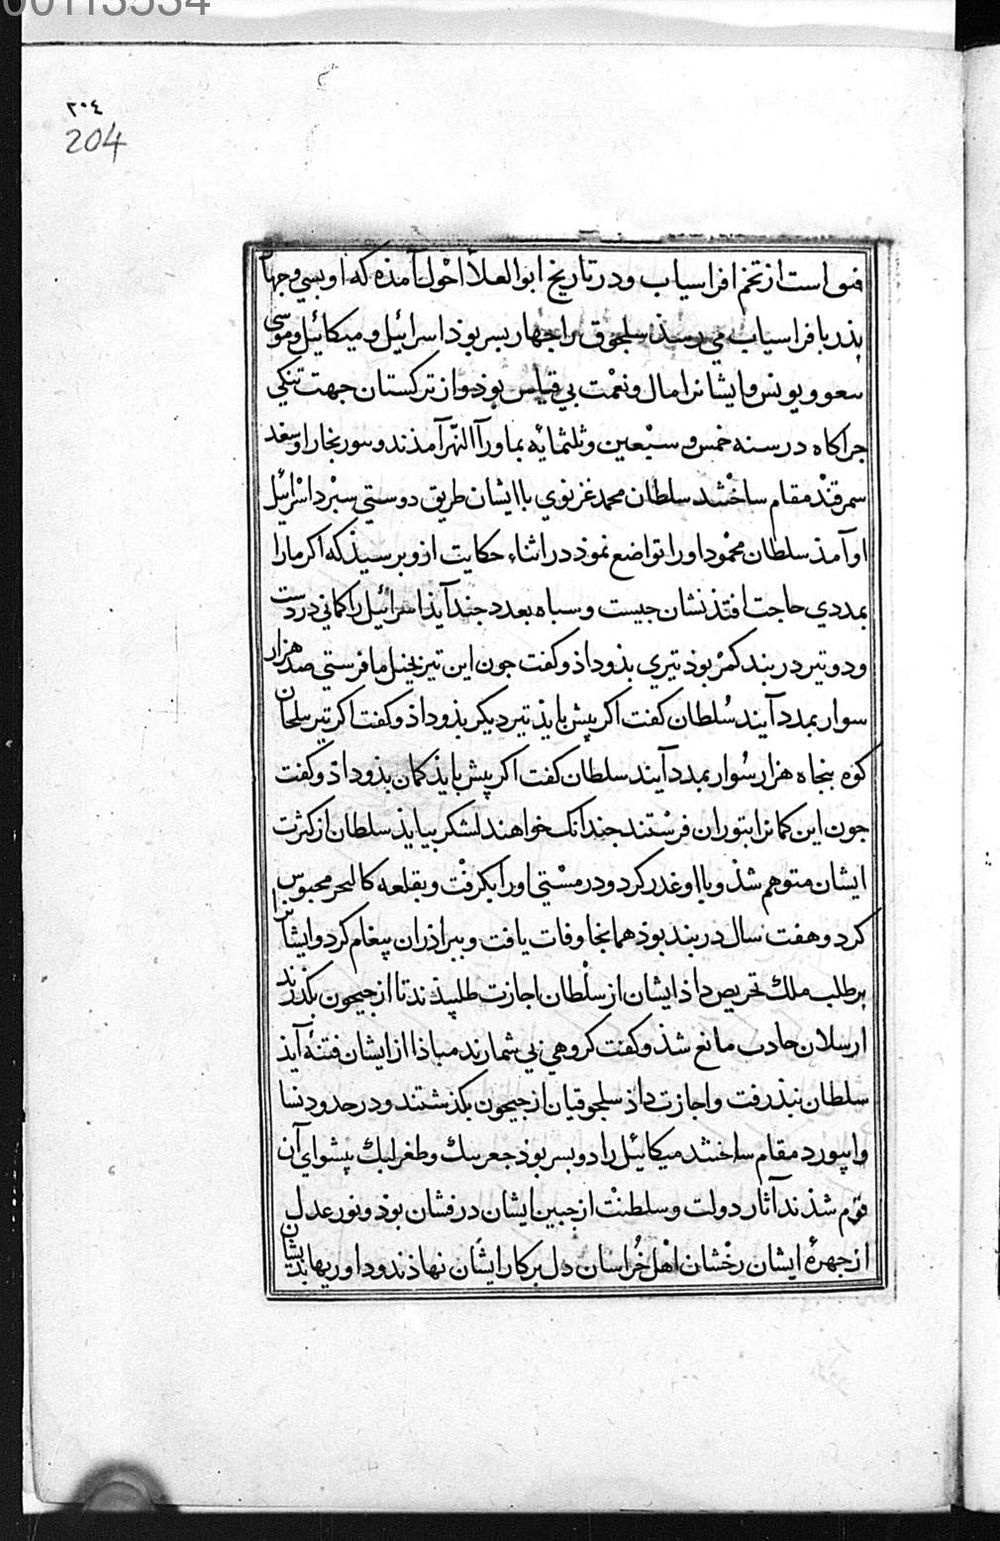 00113534
٢٠٤
204
است از تخم افراسیاب و در تاریخ ابوالعلاٴ احْول آمذه که او بسي و جهار
بذر بافراسیاب می رسذ سلجوق را جهار بسر بوذ اسرائیل و میکائیل و موسی
و یونس و ایشانرا مال و نعْمت بي قیاس بوذ و از ترکستان جهت تنکی
جراکاه در سنه خمس و سبْعین و ثلثمایٔه بماورآالنّهر آمذند و سور بخارا و سغد
سمرقنْد مقام ساخْتند سلطان محمد غزنوي با ایشان طریق دوستي سبْرد اسْرائیل
او آمذ سلطان محْمود او را تواضع نموذ در اثناء حکایت ازو برسیذ که اکر مارا
بمددي حاجت افتذ نشان جیست و سباه بعدد جند آیذ اسرائیل را کمانی در دست
و دو تیر در بند کمرْ بوذ تیري بذو داذ و کفت جون این تیر بخیل ما فرستي صد هزار
سوار بمدد آیند سُلطان کفت اکر بیش بایذ تیر دیکر بذو داذ و کفت اکر تیر بلخان
کوه بنجاه هزار سُوار بمدد آیند سلطان کفت اکر پیش بایذ کمان بذو داذ و کفت
جون این کمانرا بتوران فرستند جندانک خواهند لشکر بیایذ سلطان از کثرت
ایشان متوهم شذ و با او غدر کرد و در مسْتي او را بکرفْت و بقلعه کالنجر محبوس
کرد و هفت سال در بند بوذ همانجا وفات یافت و ببراذران پیغام کرد و ایشانرا
بر طلب ملك تحریص داذ ایشان از سلْطان اجازت طلبیذند تا از جیحون بکذرند
ارسلان جاذب مانع شذ و کفت کروهي بي شمارند مباذا از ایشان فتنهٔ آیذ
سلطان نبذرفت و اجازت داذ سلجوقیان از جیحون بکذشتند و در حدود نسا
و ابیورد مقام ساختند میکائیل را دو بسر بوذ جغربیك و طغرلبك پیشواي آن
قوْم شذند آثار دولت و سلطنْت از جبین ایشان درفشان بوذ و نور عدل
از جهرهٔ ایشان رخْشان اهْل خُراسان دل بر کار ایشان نهاذند و داوریها بذیشان